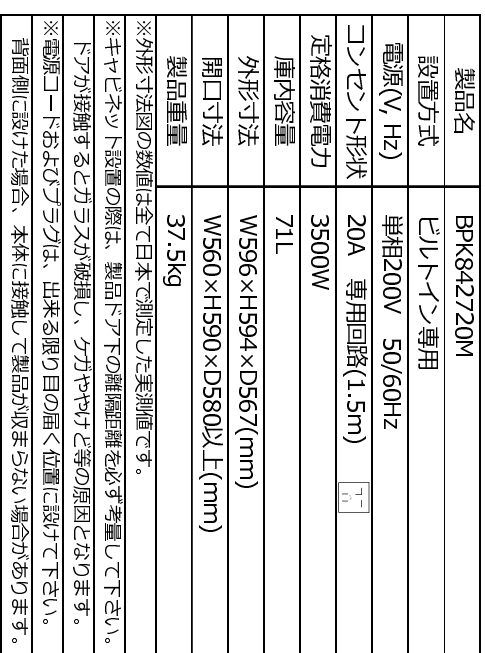 製品名 BPK842720M
設置方式 ビルトイン専用
電源(V, Hz) 単相200V 50/60Hz
コンセント形状 20A 専用回路(1.5m)
定格消費電力 3500W
庫内容量 71L
外形寸法 W596×H594×D567(mm)
開口寸法 W560×H590×D580以上(mm)
製品重量 37.5kg
※外形寸法図の数値は全て日本で測定した実測値です。
※キャビネット設置の際は、製品ドア下の離隔距離を必ず考量して下さい。
ドアが接触するとガラスが破損し、ケガややけど等の原因となります。
※電源コードおよびプラグは、出来る限り目の届く位置に設けて下さい。
背面側に設けた場合、本体に接触して製品が収まらない場合があります。